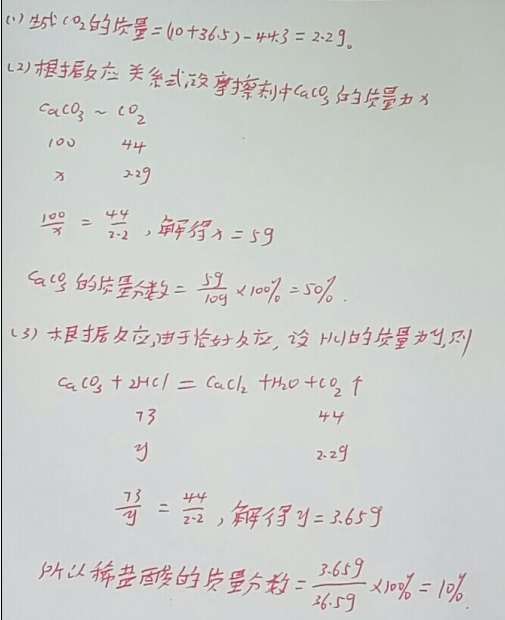 (1) 生成CO₂的质量=(10+36.5)-44.3=2.2g。
(2)根据反应关系式,设摩擦剂中CaCO₃的质量为x
CaCO₃ ~ CO₂
100 44
x 2.2g
100/x = 44/2.2 ,解得x=5g
CaCO₃的质量分数= 5g/10g ×100%=50%.
(3)根据反应,由于恰好反应,设HCl的质量为y,则
CaCO₃+2HCl=CaCl₂+H₂O+CO₂↑
73 44
y 2.2g
73/y = 44/2.2 ,解得y=3.65g
所以稀盐酸的质量分数= 3.65g/36.5g ×100%=10%.